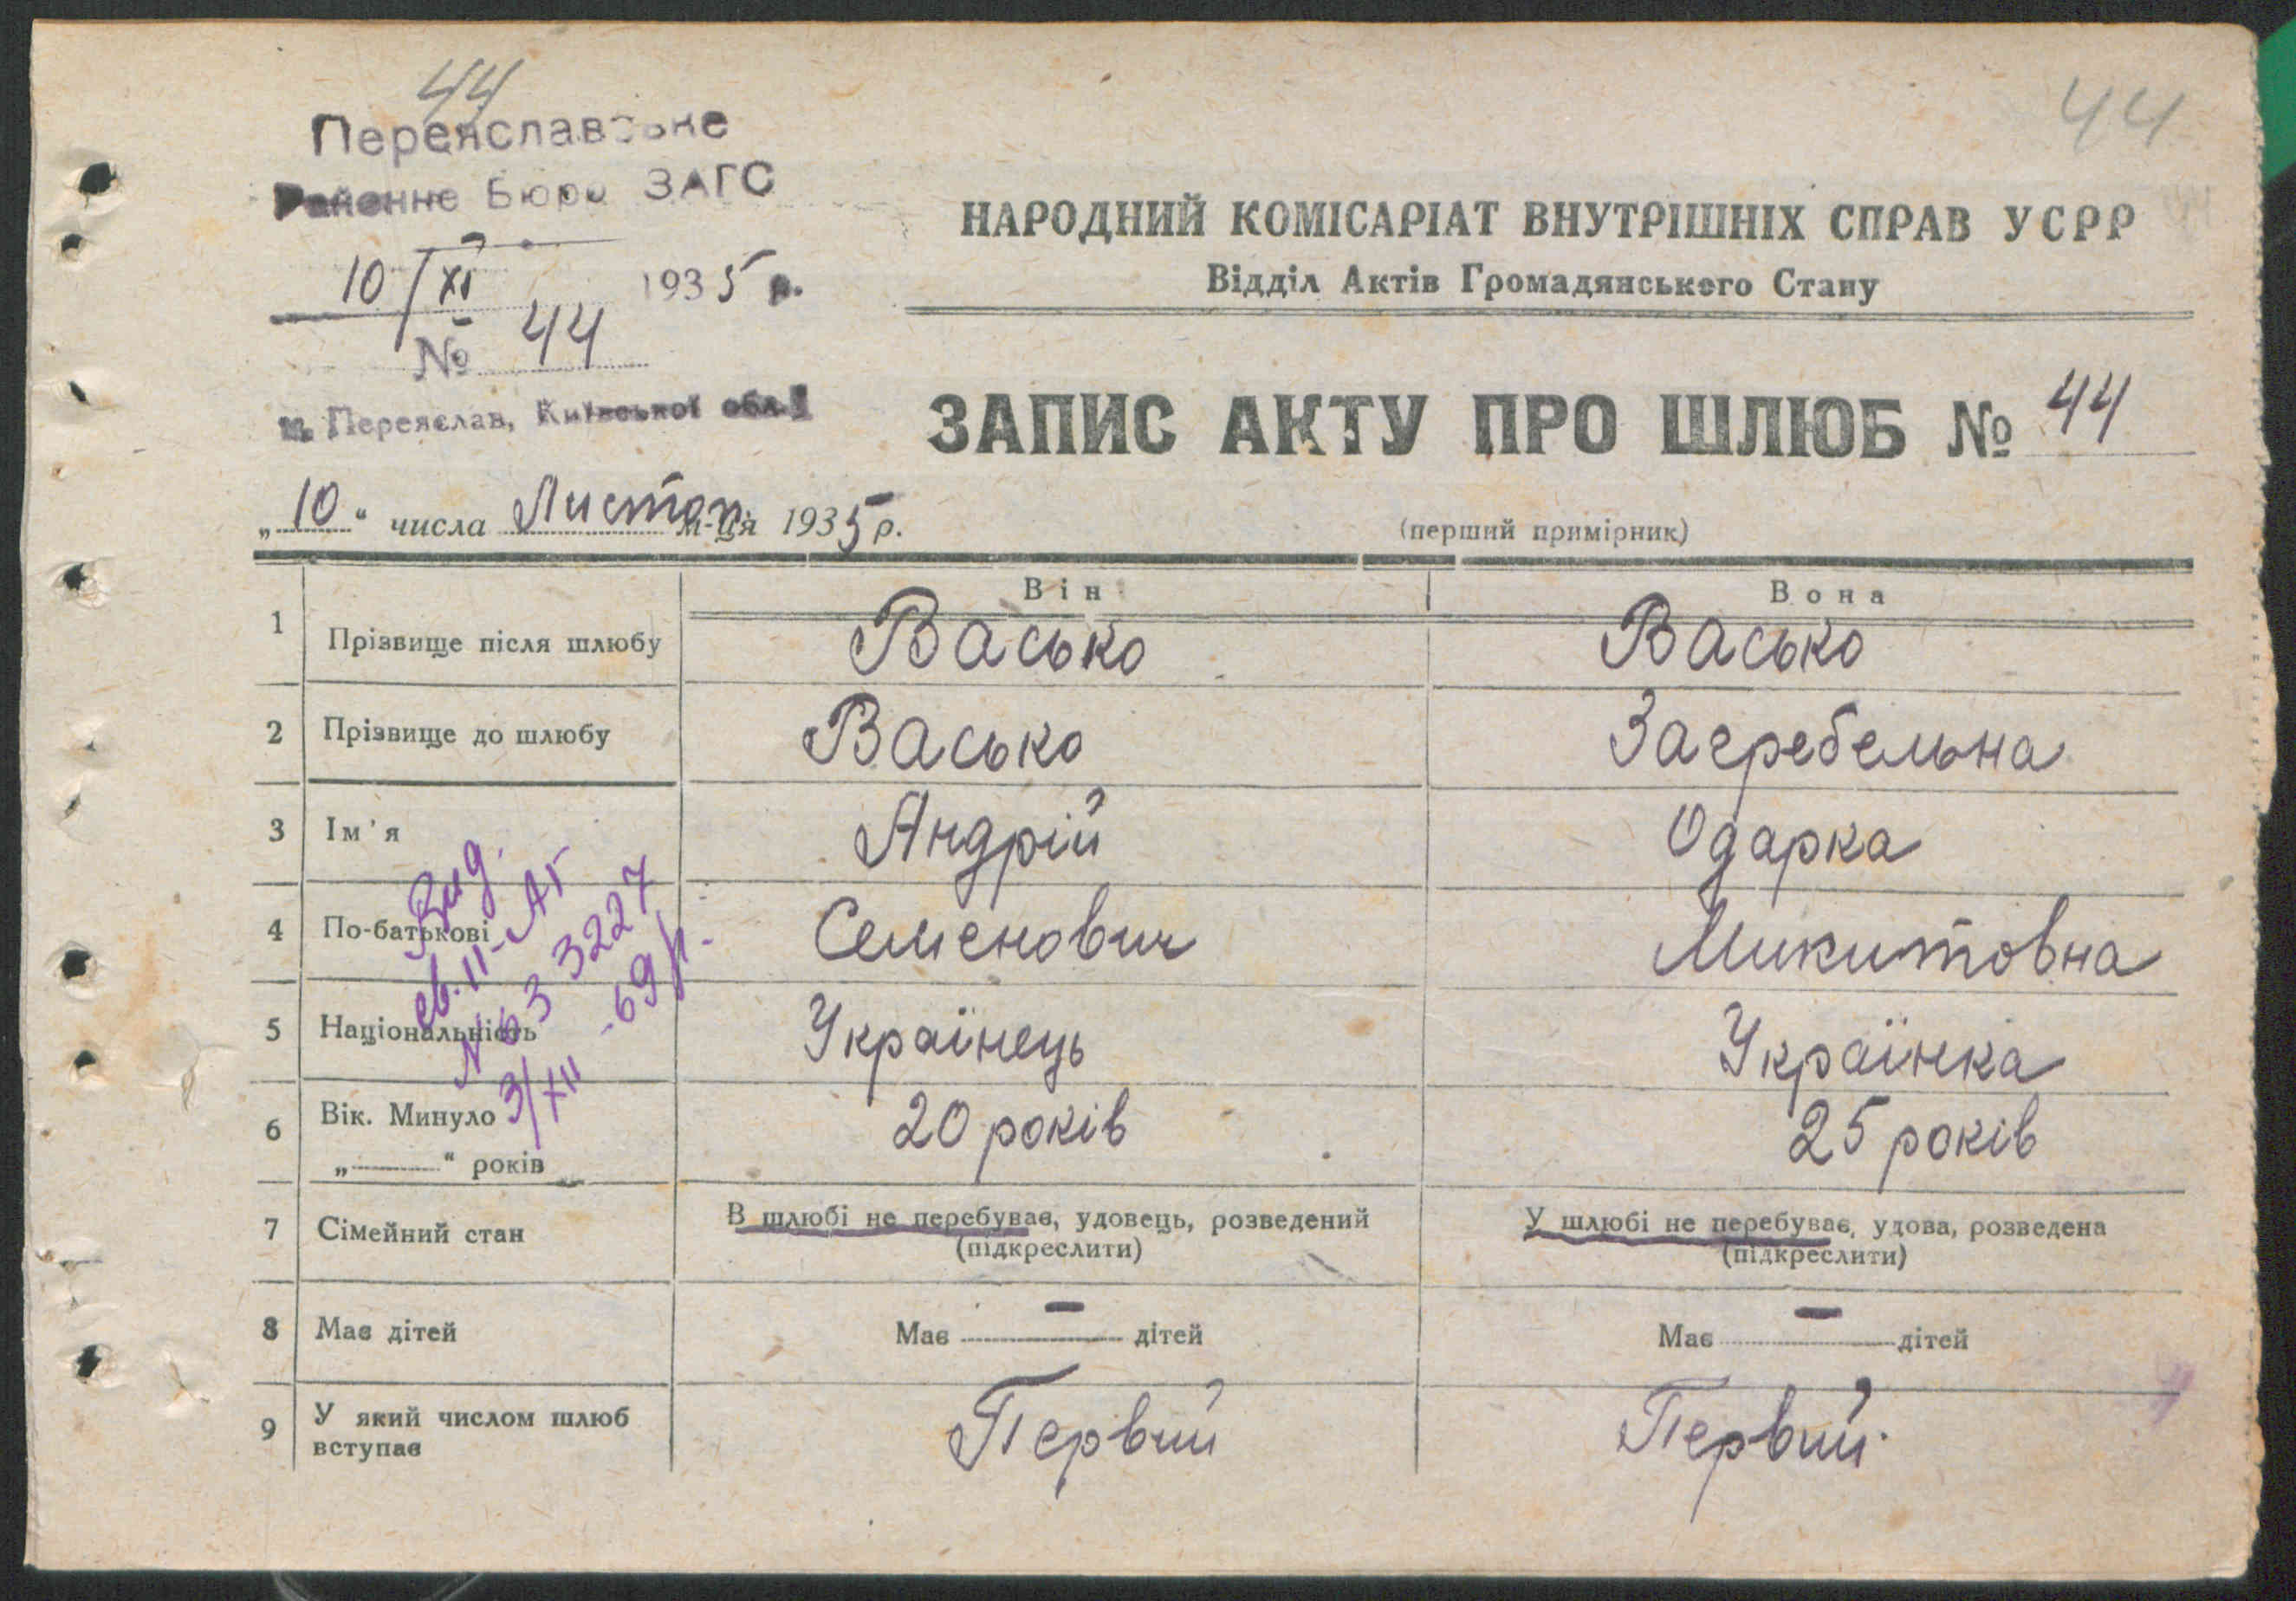 44
44
Переяславське
Районне Бюро ЗАГС
10/XI 1935 р.
№ 44
м. Переяслав, Київської обл.
НАРОДНИЙ КОМІСАРІАТ ВНУТРІШНІХ СПРАВ УСРР
Відділ Актів Громадянського Стану
ЗАПИС АКТУ ПРО ШЛЮБ № 44
„10" числа Листоп м-ця 1935 р.
(перший примірник)
Він Вона
1 Прізвище після шлюбу Васько Васько
2 Прізвище до шлюбу Васько Загребельна
3 Ім'я Андрій Одарка
4 По-батькові Семенович Микитовна
5 Національність Українець Українка
6 Вік. Минуло 20 років 25 років
„ " років
7 Сімейний стан В шлюбі не перебував, удовець, розведений У шлюбі не перебуває, удова, розведена
(підкреслити) (підкреслити)
8 Має дітей Має — дітей Має — дітей
9 У який числом шлюб Первий Первий
вступає
Вид.
св. II-АГ
№ 633227
3/XII -69 р.